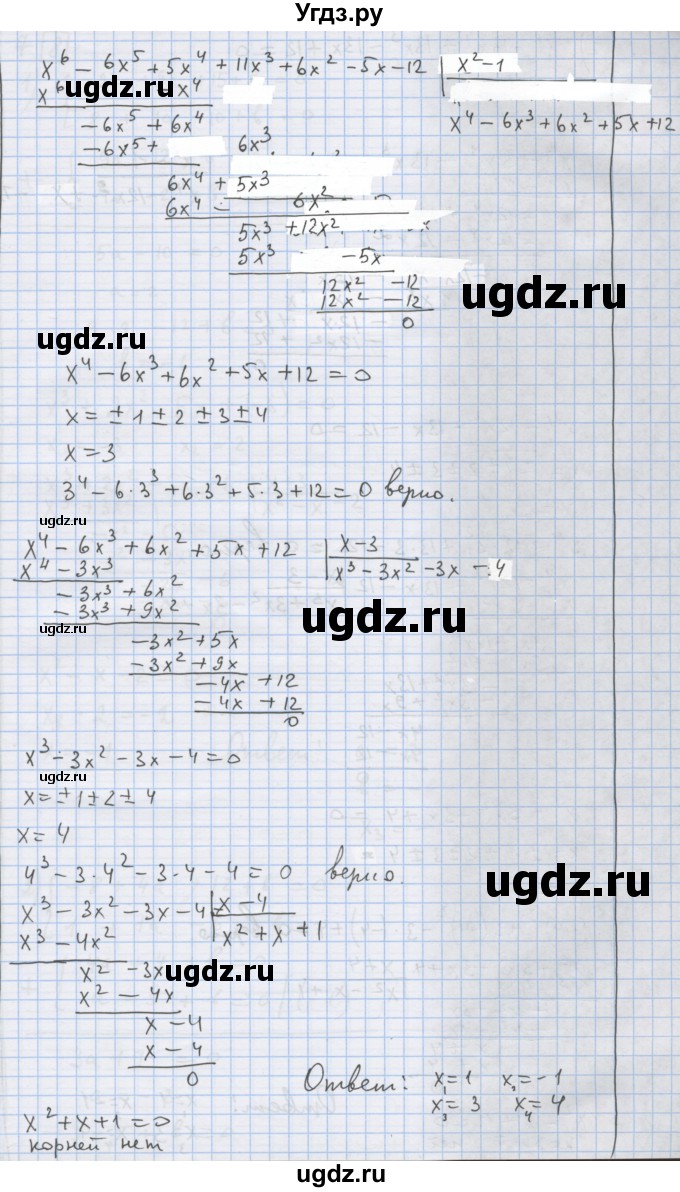 Угдз.ру
x⁶ − 6x⁵ + 5x⁴ + 11x³ + 6x² − 5x − 12 | x² − 1
x⁶ x⁴
ugdz.ru
x⁴ − 6x³ + 6x² + 5x + 12
− 6x⁵ + 6x⁴
− 6x⁵ + 6x³
6x⁴ + 5x³
6x⁴ − 6x²
5x³ + 12x²
5x³ − 5x
12x² − 12
12x² − 12
0
ugdz.ru
ugdz.ru
x⁴ − 6x³ + 6x² + 5x + 12 = 0
x = ± 1 ± 2 ± 3 ± 4
x = 3
3⁴ − 6·3³ + 6·3² + 5·3 + 12 = 0 верно.
ugdz.ru
x⁴ − 6x³ + 6x² + 5x + 12 | x − 3
x⁴ − 3x³ x³ − 3x² − 3x − 4
− 3x³ + 6x²
− 3x³ + 9x²
ugdz.ru
ugdz.ru
− 3x² + 5x
− 3x² + 9x
− 4x + 12
− 4x + 12
0
x³ − 3x² − 3x − 4 = 0
ugdz.ru
x = ± 1 ± 2 ± 4
x = 4
4³ − 3·4² − 3·4 − 4 = 0 верно.
ugdz.ru
x³ − 3x² − 3x − 4 | x − 4
x³ − 4x² x² + x + 1
x² − 3x
ugdz.ru
x² − 4x
x − 4
x − 4
0
Ответ: x₁ = 1 x₂ = −1
x₃ = 3 x₄ = 4
x² + x + 1 = 0
корней нет
ugdz.ru